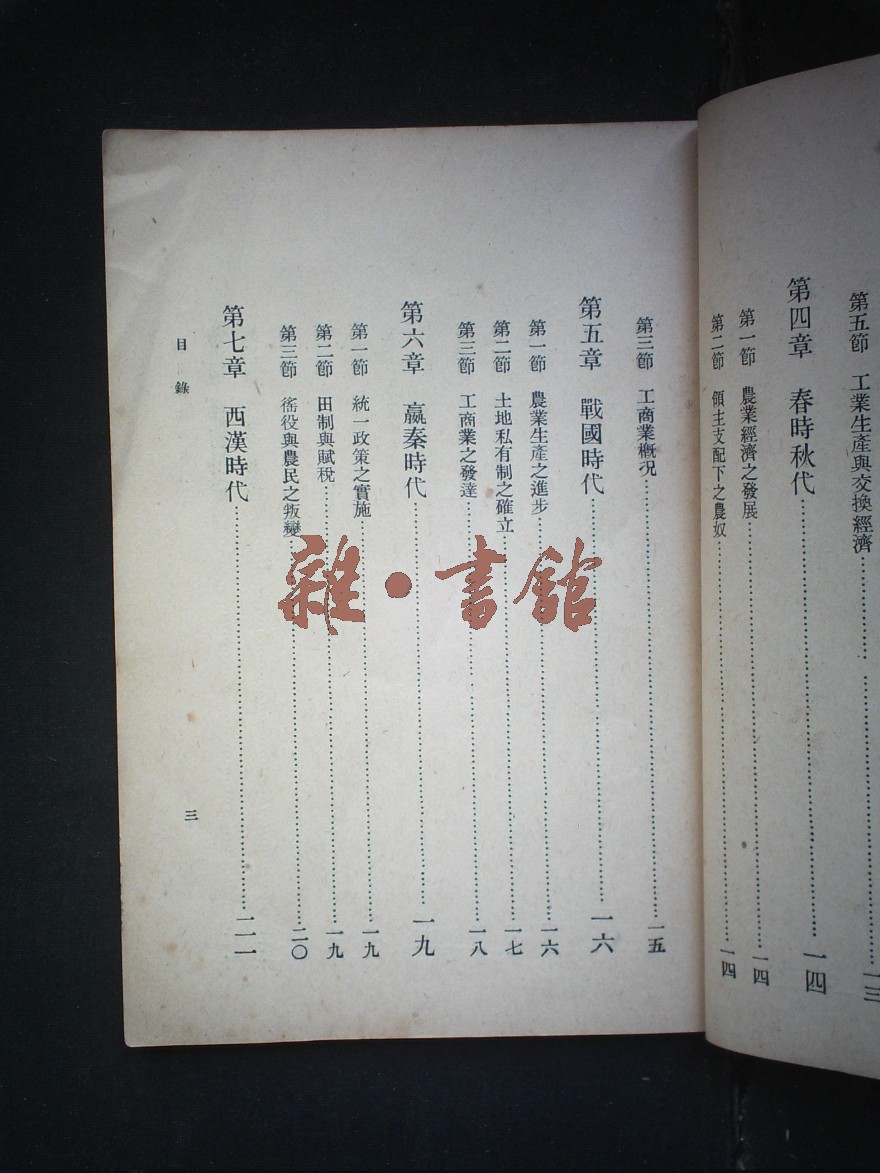 第五節 工業生產與交換經濟……一三
第四章 春時秋代……一四
第一節 農業經濟之發展……一四
第二節 領主支配下之農奴……一四
第三節 工商業槪况……一五
第五章 戰國時代……一六
第一節 農業生產之進步……一六
第二節 土地私有制之確立……一七
第三節 工商業之發達……一八
第六章 嬴秦時代……一九
第一節 統一政策之實施……一九
第二節 田制與賦稅……一九
第三節 徭役與農民之叛變……二〇
第七章 西漢時代……二一
目錄
三
雜·書館